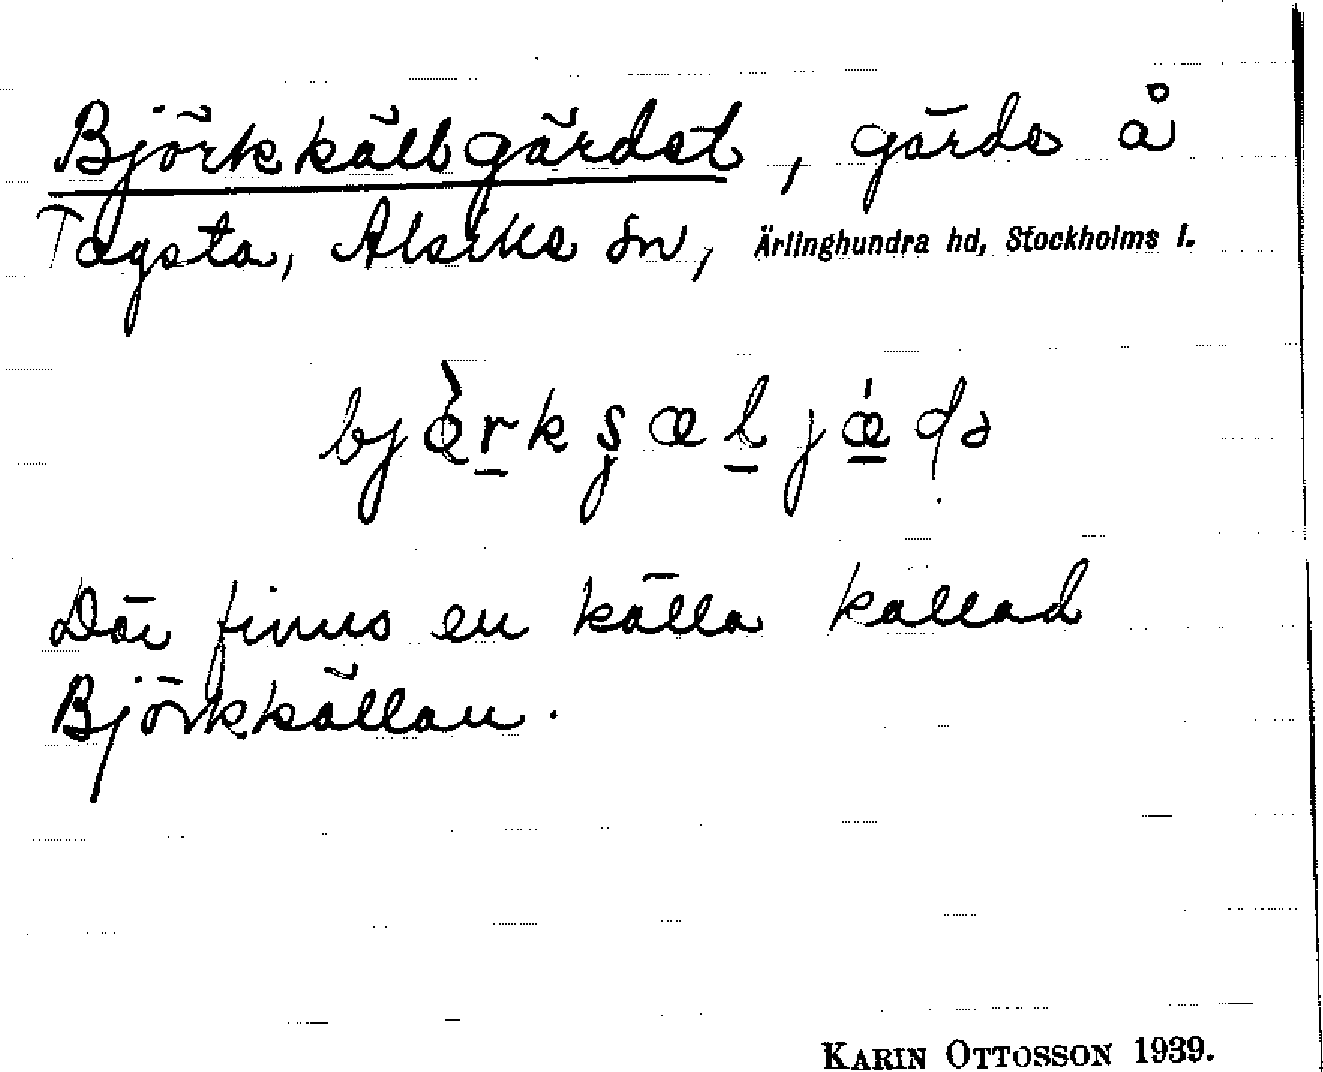 Björkkällgärdet, gärde å
Tagsta, Alsike sn, Ärlinghundra hd, Stockholms l.
Där finns en källa kallad
Björkkällan.
KARIN OTTOSSON 1939.